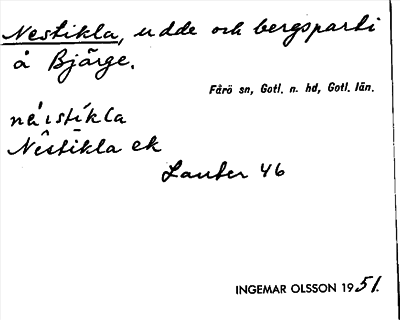 Nestikla, udde och bergsparti
å Bjärge.
Fårö sn, Gotl. n. hd, Gotl. län.
näistíkla
Nêstikla ek
Lauter 46
INGEMAR OLSSON 1951.